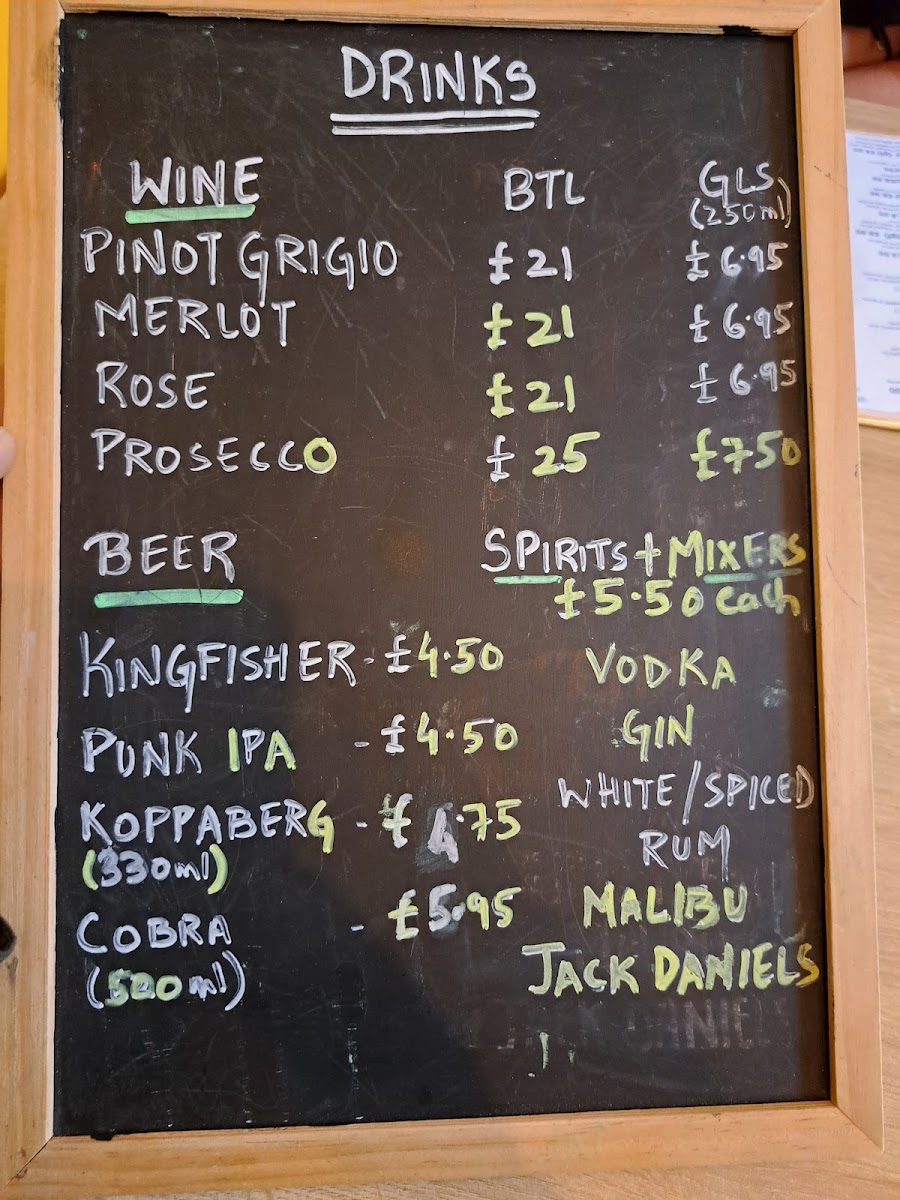 DRINKS
WINE BTL GLS
(250ml)
PINOT GRIGIO £21 £6.95
MERLOT £21 £6.95
ROSE £21 £6.95
PROSECCO £25 £7.50
BEER SPIRITS + MIXERS
£5.50 each
KINGFISHER - £4.50 VODKA
PUNK IPA - £4.50 GIN
KOPPABERG - £4.75 WHITE/SPICED
(330ml) RUM
COBRA - £5.95 MALIBU
(500ml) JACK DANIELS